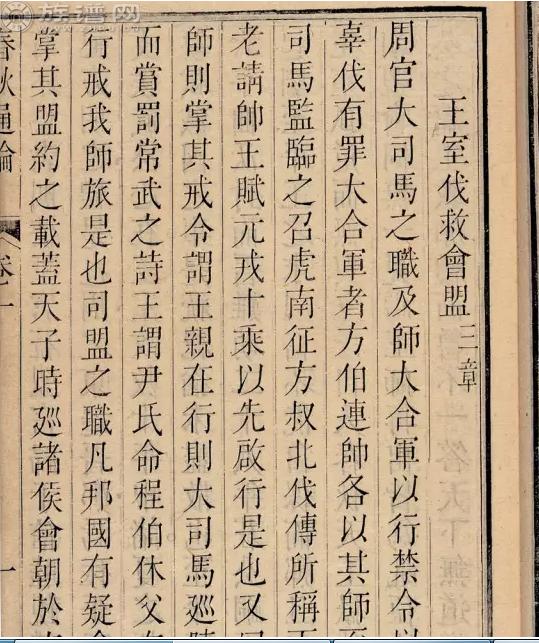 王室伐救會盟三章
周官大司馬之職及師大合軍以行禁令以
辜伐有罪大合軍者方伯連帥各以其師
司馬監臨之召虎南征方叔北伐傳所稱
老請帥王賦元戎十乘以先啟行是也又曰
師則掌其戒令謂王親在行則大司馬廵
而賞罰常武之詩王謂尹氏命程伯休父
行戒我師旅是也司盟之職凡邦國有疑
掌其盟約之載蓋天子時廵諸侯會朝於
春秋通論
卷一
一
族谱网